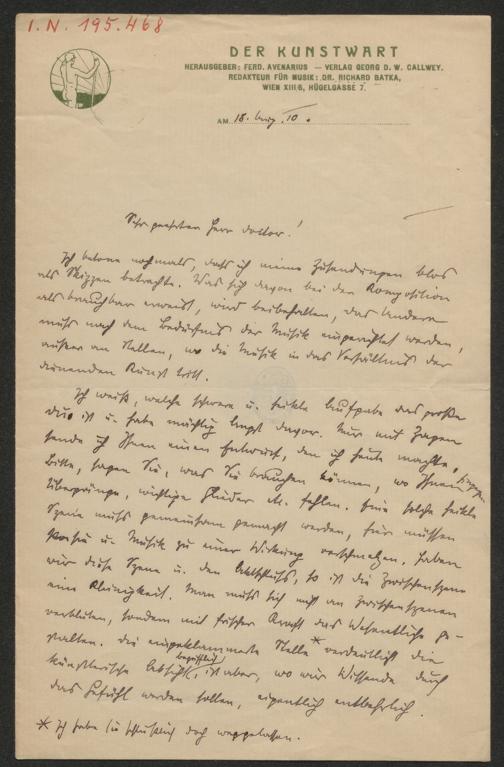 I.N. 195.468
DER KUNSTWART
HERAUSGEBER: FERD. AVENARIUS — VERLAG GEORG D. W. CALLWEY.
REDAKTEUR FÜR MUSIK: DR. RICHARD BATKA,
WIEN XIII/6, HÜGELGASSE 7.
AM 18. Aug. 10.
Sehr geehrter Herr Doctor!
Ich betone nochmals, dass ich meine Zusendungen blos
als Skizzen betrachte. Was sich davon bei der Komposition
als brauchbar erweist, wird beibehalten, das Andere
muss nach dem Bedürfnis der Musik eingerichtet werden,
ausser an Stellen, wo die Musik in das Verhältnis der
dienenden Kunst tritt.
Ich weiß, welche schwere u. heikle Aufgabe das große
Duo ist u. habe mächtig Angst davor. Nur mit Zagen
sende ich Ihnen einen Entwurf, den ich heute machte,
Bitte, sagen Sie, was Sie brauchen können, wo Ihnen
Übergänge, wichtige Glieder etc. fehlen. Eine solche heikle
Szene muss gemeinsam gemacht werden, hier müssen
Poesie u. Musik zu einer Wirkung verschmelzen. Haben
wir diese Szene u. den Aktschluss, so ist die Zwischenszene
eine Kleinigkeit. Man muss sich nicht an Zwischenszenen
verbluten, sondern mit frischer Kraft das Wesentliche ge-
stalten. Die eingeklammerte Stelle * verdeutlicht die
künstlerische Absicht begrifflich, ist aber, wo wir Wissende durch
das Gefühl werden sollen, eigentlich entbehrlich.
* Ich habe sie schließlich doch weggelassen.